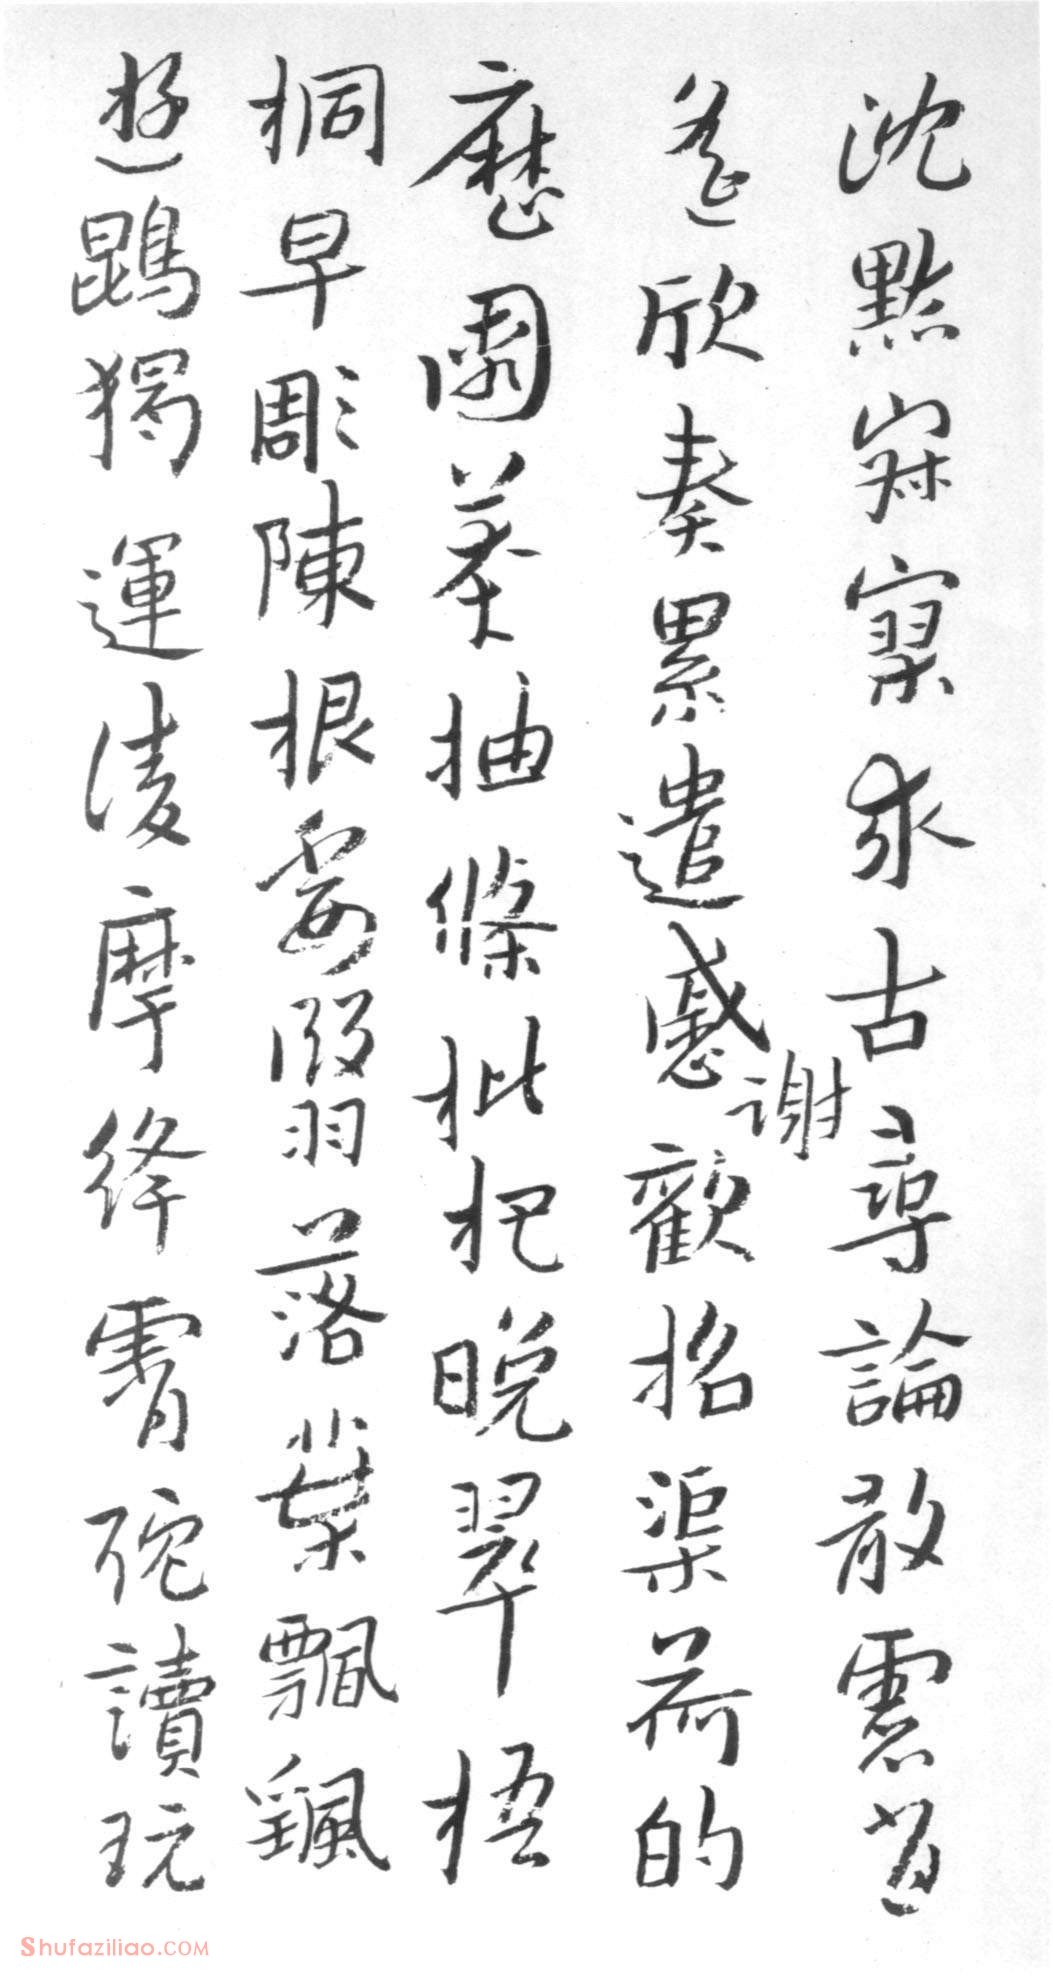 沈默寂寥求古尋論散慮逍
遙欣奏累遣慼謝歡招渠荷的
歷園莽抽條枇杷晚翠梧
桐早彫陳根委翳落葉飄颻
遊鵾獨運淩摩絳霄耽讀玩
Shufaziliao.COM